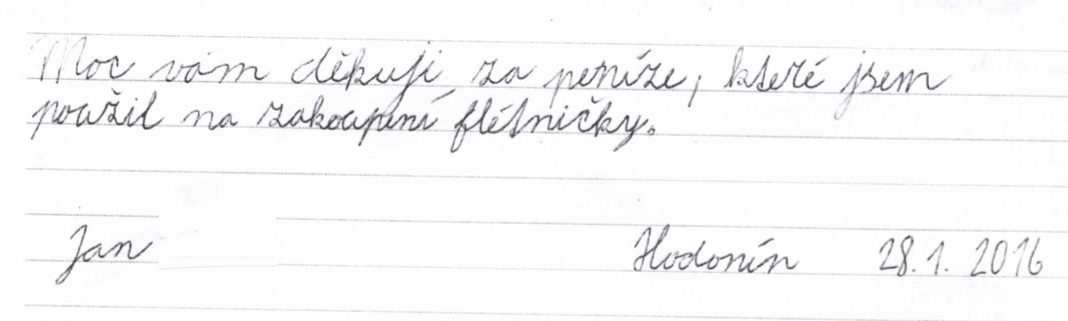 Moc vám děkuji za peníze, které jsem
použil na zakoupení flétničky.
Jan Hodonín 28.1. 2016